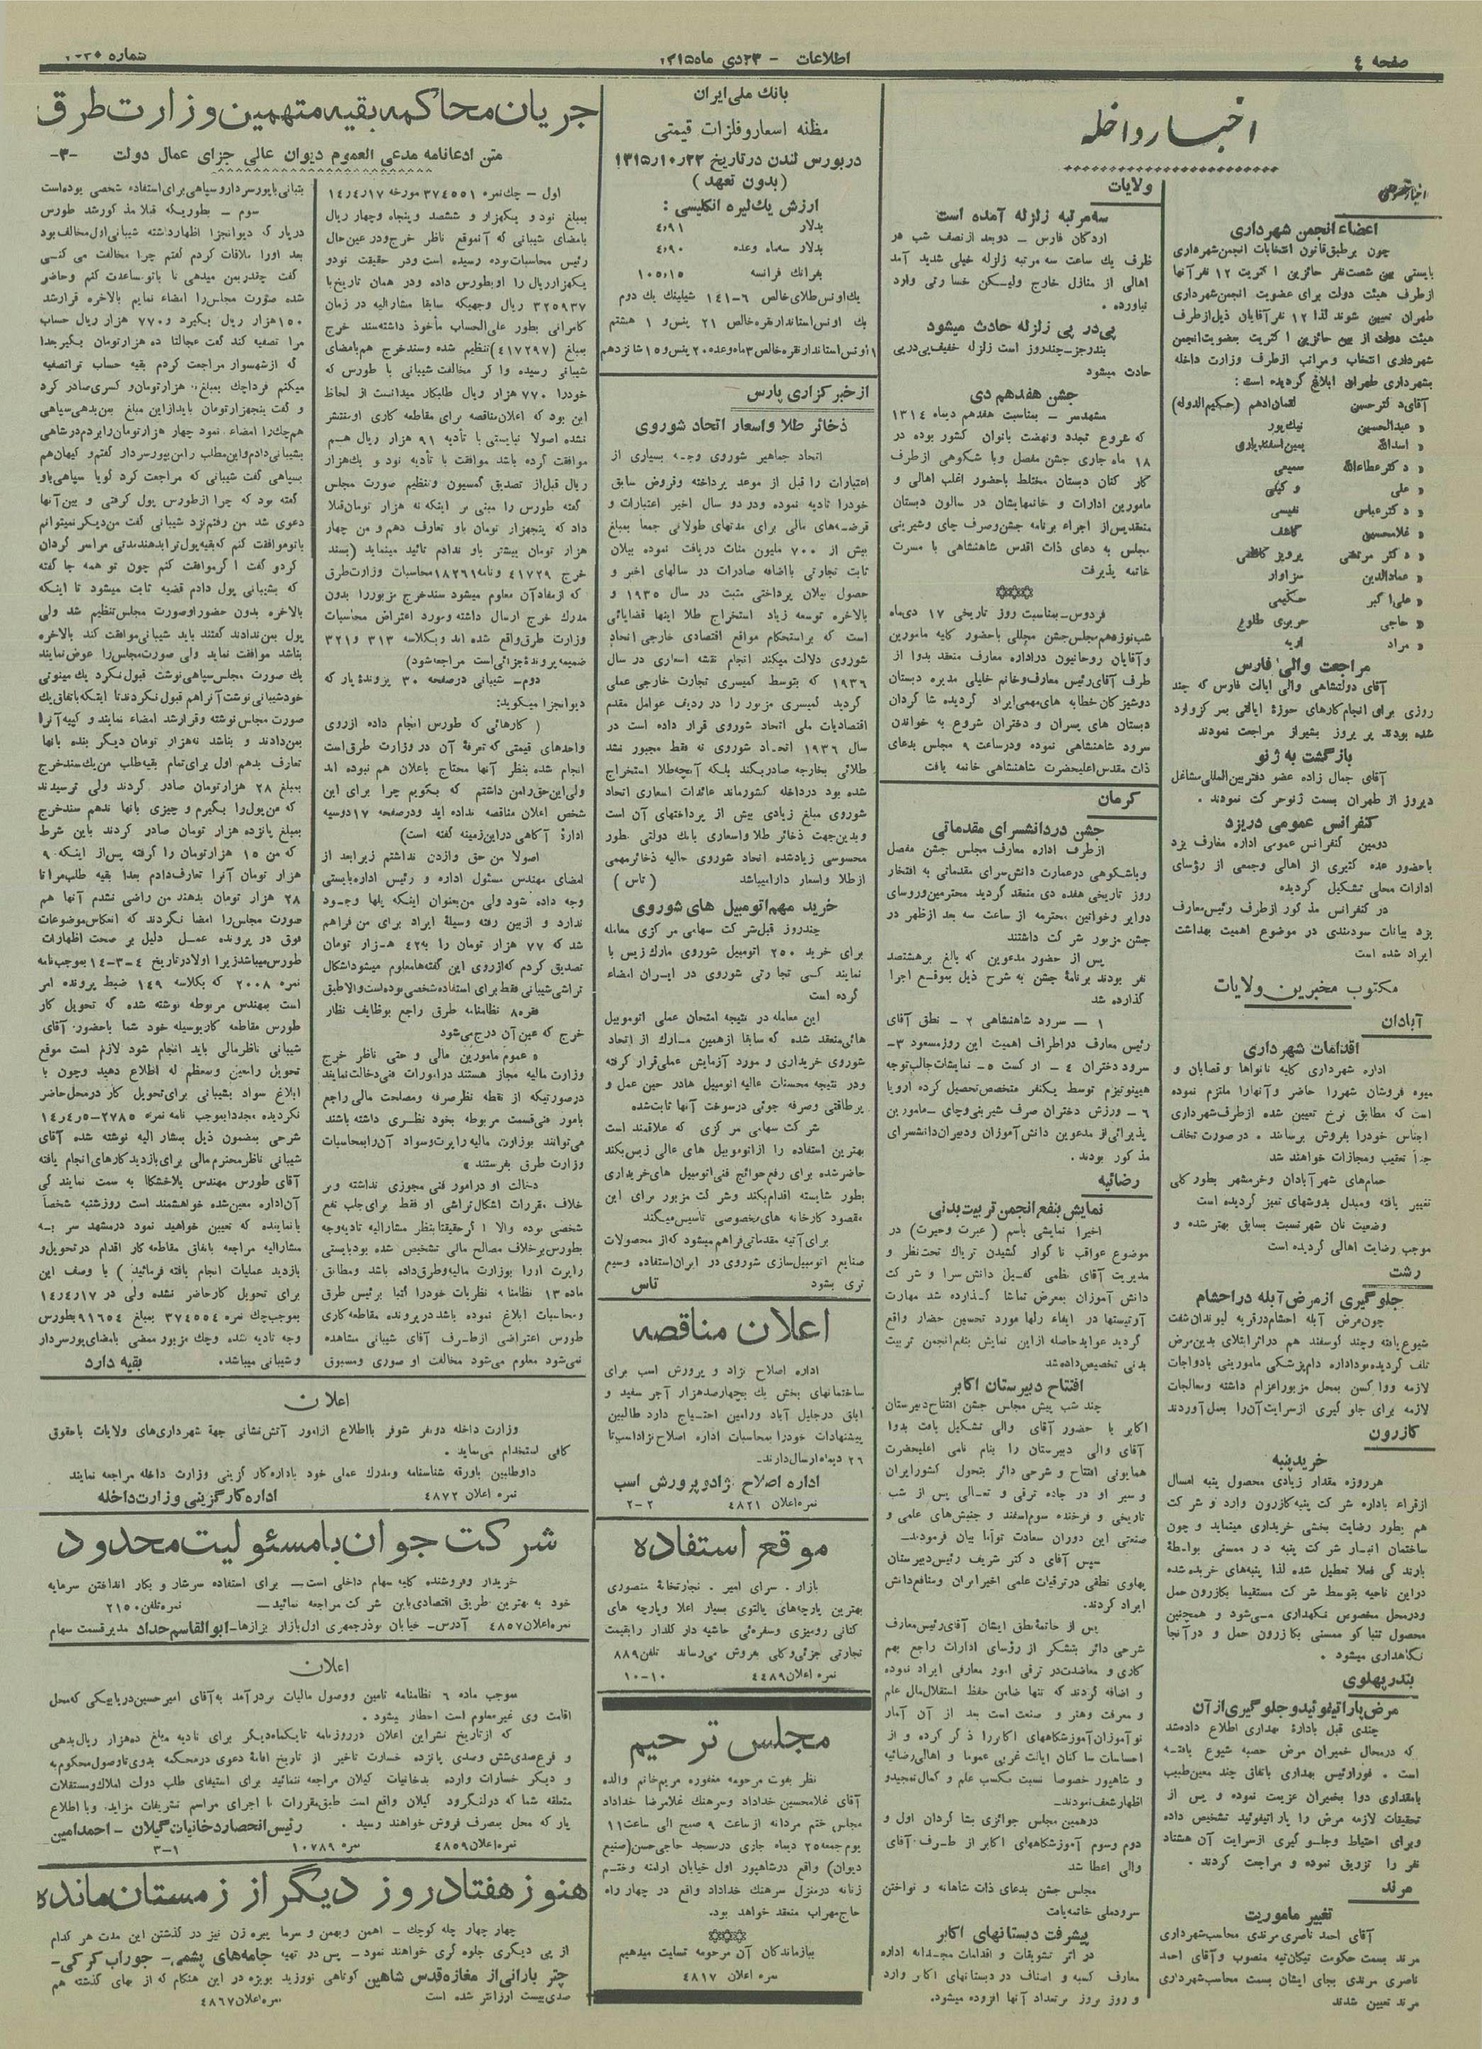 صفحه ٤
اطلاعات - ۲۳ دی ماه ۱۳۱۵
شماره
اخبار داخله
اعضاء انجمن شهرداری
چون برطبق قانون انتخابات انجمن شهرداری
بایستی بین شصت نفر حائزین اکثریت ۱۲ نفر آنها
از طرف هیئت دولت برای عضویت انجمن شهرداری
طهران تعیین شوند لذا ۱۲ نفر آقایان ذیل از طرف
هیئت دولت از بین حائزین اکثریت بعضویت انجمن
شهرداری انتخاب و مراتب از طرف وزارت داخله
بشهرداری طهران ابلاغ گردیده است :
آقای دکتر حسین لقمان ادهم (حکیم الدوله)
« عبدالحسین نیک پور
« اسدالله یمین اسفندیاری
« دکتر عطاءالله سمیعی
« علی وکیلی
« دکتر عباس نفیسی
« غلامحسین کاشف
« دکتر مرتضی پرویز کاظمی
« عمادالدین سزاوار
« علی اکبر حکیمی
« حاجی حریری طلوع
« مراد اریه
مراجعت والی فارس
آقای دولتشاهی والی ایالت فارس که چند
روزی برای انجام کارهای حوزهٔ ایالتی بمرکز وارد
شده بودند پریروز بشیراز مراجعت نمودند
بازگشت به ژنو
آقای جمال زاده عضو دفتر بین المللی مشاغل
دیروز از طهران بسمت ژنو حرکت نمودند .
کنفرانس عمومی دریزد
دومین کنفرانس عمومی اداره معارف یزد
باحضور عده کثیری از اهالی وجمعی از رؤسای
ادارات محلی تشکیل گردیده
در کنفرانس مذکور از طرف رئیس معارف
یزد بیانات سودمندی در موضوع اهمیت بهداشت
ایراد شده است
مکتوب مخبرین ولایات
آبادان
اقدامات شهرداری
اداره شهرداری کلیه نانواها و قصابان و
میوه فروشان شهر را حاضر و آنها را ملتزم نموده
است که مطابق نرخ تعیین شده از طرف شهرداری
اجناس خود را بفروش برسانند . در صورت تخلف
جداً تعقیب و مجازات خواهند شد
حمام های شهر آبادان و خرمشهر بطور کلی
تغییر یافته و مبدل بدوشهای تمیز گردیده است
وضعیت نان شهر نسبت بسابق بهتر شده و
موجب رضایت اهالی گردیده است
رشت
جلوگیری از مرض آبله در احشام
چون مرض آبله احشام در قریه لیوندان شفت
شیوع یافته و چند گوسفند هم در اثر ابتلای بدین مرض
تلف گردیده بود اداره دامپزشکی مامورینی با دواجات
لازمه و واکسن بمحل مزبور اعزام داشته و معالجات
لازمه برای جلوگیری از سرایت آن را بعمل آوردند
کازرون
خرید پنبه
هرروزه مقدار زیادی محصول پنبه امسال
از قراء باداره شرکت پنبه کازرون وارد و شرکت
هم بطور رضایت بخشی خریداری مینماید و چون
ساختمان انبار شرکت پنبه در ممسنی بواسطهٔ
بارندگی فعلا تعطیل شده لذا پنبه های خرید شده
در این ناحیه بتوسط شرکت مستقیما بکازرون حمل
و در محل مخصوص نگهداری می شود و همچنین
محصول تنباکو ممسنی بکازرون حمل و در آنجا
نگاهداری میشود .
بندر پهلوی
مرض پاراتیفوئید و جلوگیری از آن
چندی قبل بادارهٔ بهداری اطلاع داده شد
که در محل خمیران مرض حصبه شیوع یافته
است . فورا رئیس بهداری باتفاق چند معین طبیب
بامقداری دوا بخمیران عزیمت نموده و پس از
تحقیقات لازمه مرض را پاراتیفوئید تشخیص داده
و برای احتیاط و جلوگیری از سرایت آن هشتاد
نفر را تزریق نموده و مراجعت کردند .
مرند
تغییر ماموریت
آقای احمد ناصری مرندی محاسب شهرداری
مرند بسمت حکومت تیکان تپه منصوب و آقای احمد
ناصری مرندی بجای ایشان بسمت محاسب شهرداری
مرند تعیین شدند
ولایات
سه مرتبه زلزله آمده است
اردکان فارس – دو بعد از نصف شب هر
ظرف یک ساعت سه مرتبه زلزله خیلی شدید آمد
اهالی از منازل خارج ولیکن خسارتی وارد
نیاورده .
پی در پی زلزله حادث میشود
بندر جز – چند روز است زلزله خفیف پی در پی
حادث میشود
جشن هفدهم دی
مشهدسر – بمناسبت هفدهم دیماه ۱۳۱٤
که شروع تجدد و نهضت بانوان کشور بوده در
۱۸ ماه جاری جشن مفصل و با شکوهی از طرف
کارکنان دبستان مختلط باحضور اغلب اهالی و
مامورین ادارات و خانمهایشان در سالون دبستان
منعقد پس از اجراء برنامه جشن و صرف چای و شیرینی
مجلس به دعای ذات اقدس شاهنشاهی با مسرت
خاتمه پذیرفت
فردوس – بمناسبت روز تاریخی ۱۷ دی ماه
شب نوزدهم مجلس جشن مجللی باحضور کلیه مامورین
و آقایان روحانیون در اداره معارف منعقد بدوا از
طرف آقای رئیس معارف و خانم خلیلی مدیره دبستان
دوشیزگان خطابه های مهمی ایراد گردیده شاگردان
دبستان های پسران و دختران شروع به خواندن
سرود شاهنشاهی نموده و در ساعت ۹ مجلس بدعای
ذات مقدس اعلیحضرت شاهنشاهی خاتمه یافت
کرمان
جشن در دانشسرای مقدماتی
از طرف اداره معارف مجلس جشن مفصل
و باشکوهی در عمارت دانش سرای مقدماتی به افتخار
روز تاریخی هفده دی منعقد گردید محترمین و روسای
دوایر و خوانین محترمه از ساعت سه بعد از ظهر در
جشن مزبور شرکت داشتند
پس از حضور مدعوین که بالغ بر هشتصد
نفر بودند برنامهٔ جشن به شرح ذیل بموقع اجرا
گذارده شد
۱ – سرود شاهنشاهی ۲ – نطق آقای
رئیس معارف در اطراف اهمیت این روز مسعود ۳–
سرود دختران ٤ – ارکست ۵ – نمایشات جالب توجه
هیپنوتیزم توسط یکنفر متخصص تحصیل کرده اروپا
۶ – ورزش دختران صرف شیرینی و چای – مامورین
پذیرائی از مدعوین دانش آموزان و دبیران دانشسرای
مذکور بودند .
رضائیه
نمایش بنفع انجمن تربیت بدنی
اخیراً نمایشی باسم ( عبرت و حیرت ) در
موضوع عواقب ناگوار کشیدن تریاک تحت نظر و
مدیریت آقای نظمی کفیل دانش سرا و شرکت
دانش آموزان بمعرض تماشا گذارده شد مهارت
آرتیستها در ایفاء رلها مورد تحسین حضار واقع
گردید عواید حاصله از این نمایش بنفع انجمن تربیت
بدنی تخصیص داده شد
افتتاح دبیرستان اکابر
چند شب پیش مجلس جشن افتتاح دبیرستان
اکابر با حضور آقای والی تشکیل یافت بدوا
آقای والی دبیرستان را بنام نامی اعلیحضرت
همایونی افتتاح و شرحی دائر بتحول کشور ایران
و سیر او در جاده ترقی و تعالی پس از شب
تاریخی و فرخنده سوم اسفند و جنبش های علمی و
صنعتی این دوران سعادت توأما بیان فرمودند.
سپس آقای دکتر شریف رئیس دبیرستان
پهلوی نطقی در ترقیات علمی اخیر ایران و منافع دانش
ایراد کردند.
پس از خاتمهٔ نطق ایشان آقای رئیس معارف
شرحی دائر بتشکر از رؤسای ادارات راجع بهم
کاری و معاضدت در ترقی امور معارفی ایراد نموده
و اضافه کردند که تنها ضامن حفظ استقلال مال علم
و معرفت و هنر و صنعت است بعد از آن آمار
نوآموزان آموزشگاههای اکابر را ذکر کرده و از
احساسات ساکنان ایالت غربی عموما و اهالی رضائیه
و شاهپور خصوصا نسبت بکسب علم و کمال تمجید و
اظهار شعف نمودند.
در همین مجلس جوائزی بشاگردان اول و
دوم و سوم آموزشگاههای اکابر از طرف آقای
والی اعطا شد
مجلس جشن بدعای ذات شاهانه و نواختن
سرود ملی خاتمه یافت
پیشرفت دبستانهای اکابر
در اثر تشویقات و اقدامات مجدانه اداره
معارف کسبه و اصناف در دبستانهای اکابر وارد
و روز بروز بر تعداد آنها افزوده میشود.
بانک ملی ایران
مظنه اسعار و فلزات قیمتی
در بورس لندن در تاریخ ۱۳۱۵/۱۰/۲۲
(بدون تعهد)
ارزش یک لیره انگلیسی :
بدلار ٤/۹۱
بدلار سه ماه وعده ٤/۹۰
بفرانک فرانسه ۱۰۵/۱۵
یک اونس طلای خالص ۶-۱٤۱ شیلینگ یک دوم
یک اونس استاندار نقره خالص ۲۱ پنس و ۱ هشتم
۱ اونس استاندار نقره خالص ۳ ماه وعده ۲۰ پنس و ۱۵ شانزدهم
از خبرگزاری پارس
ذخائر طلا و اسعار اتحاد شوروی
اتحاد جماهیر شوروی وجه بسیاری از
اعتبارات را قبل از موعد پرداخته و قروض سابق
خود را تادیه نموده و در دو سال اخیر اعتبارات و
قرضه های مالی برای مدتهای طولانی جمعاً بمبلغ
بیش از ۷۰۰ ملیون منات دریافت نموده بیلان
ثابت تجارتی بااضافه صادرات در سالهای اخیر و
حصول بیلان پرداختی مثبت در سال ۱۹۳۵ و
بالاخره توسعه زیاد استخراج طلا اینها قضایائی
است که بر استحکام مواقع اقتصادی خارجی اتحاد
شوروی دلالت میکند انجام نقشه اسعاری در سال
۱۹۳۶ که بتوسط کمیسری تجارت خارجی عملی
گردید کمیسری مزبور را در ردیف عوامل مقدم
اقتصادیات ملی اتحاد شوروی قرار داده است در
سال ۱۹۳۶ اتحاد شوروی نه فقط مجبور نشد
طلائی بخارجه صادر بکند بلکه آنچه طلا استخراج
شده بود در داخله کشور ماند عائدات اسعاری اتحاد
شوروی مبلغ زیادی بیش از پرداختهای آن است
و بدین جهت ذخائر طلا و اسعاری بانک دولتی بطور
محسوسی زیاد شده اتحاد شوروی حالیه ذخائر مهمی
از طلا و اسعار دارا میباشد (تاس)
خرید مهم اتومبیل های شوروی
چند روز قبل شرکت سهامی مرکزی معامله
برای خرید ۲۵۰ اتومبیل شوروی مارک زیس با
نمایندگی تجارتی شوروی در ایران امضاء
کرده است
این معامله در نتیجه امتحان عملی اتوموبیل
هائی منعقد شده که سابقا از همین مارک از اتحاد
شوروی خریداری و مورد آزمایش عملی قرار گرفته
و در نتیجه محسنات عالیه اتومبیل ها در حین عمل و
پرطاقتی و صرفه جوئی در سوخت آنها ثابت شده
شرکت سهامی مرکزی که علاقمند است
بهترین استفاده را از اتوموبیل های عالی زیس بکند
حاضر شده برای رفع حوائج فنی اتومبیل های خریداری
بطور شایسته اقدام بکند و شرکت مزبور برای این
مقصود کارخانه های مخصوصی تاسیس میکند
برای آتیه مقدماتی فراهم میشود که از محصولات
صنایع اتومبیل سازی شوروی در ایران استفاده وسیع
تری بشود تاس
اعلان مناقصه
اداره اصلاح نژاد و پرورش اسب برای
ساختمانهای بخش یک بچهارصد هزار آجر سفید و
ابلق در جلیل آباد ورامین احتیاج دارد طالبین
پیشنهادات خود را بمحاسبات اداره اصلاح نژاد اسب تا
۲۶ دیماه ارسال دارند.
اداره اصلاح نژاد و پرورش اسب
نمره اعلان ٤۸۲۱ ۲-۲
موقع استفاده
بازار . سرای امیر . تجارتخانهٔ منصوری
بهترین پارچه های پالتوی بسیار اعلا و پارچه های
کتانی رومیزی و سفره ئی حاشیه دار گلدار را بقیمت
تجارتی جزئی و کلی بفروش می رساند تلفن ۸۸۹
نمره اعلان ٤٤۸۹ ۱۰-۱۰
مجلس ترحیم
نظر بفوت مرحومه مغفوره مریم خانم والده
آقای غلامحسین خداداد و سرهنگ غلامرضا خداداد
مجلس ختم مردانه از ساعت ۹ صبح الی ساعت ۱۱
یوم جمعه ۲۵ دیماه جاری در مسجد حاجی حسن (صنیع
دیوان) واقع در شاهپور اول خیابان ارامنه و ختم
زنانه در منزل سرهنگ خداداد واقع در چهار راه
حاج مهراب منعقد خواهد بود.
ببازماندگان آن مرحومه تسلیت میدهیم
نمره اعلان ٤۸۱۷
جریان محاکمه بقیه متهمین وزارت طرق
متن ادعانامه مدعی العموم دیوان عالی جزای عمال دولت -۳-
اول – چک نمره ۳۷٤۵۵۱ مورخه ۱٤/٤/۱۷
بمبلغ نود و یکهزار و ششصد و پنجاه و چهار ریال
بامضای شیبانی که آنموقع ناظر خرج و در عین حال
رئیس محاسبات بوده رسیده است و در حقیقت نود و
یکهزار ریال را او بطورس داده و در همان تاریخ با
۳۲۵۹۳۷ ریال وجهیکه سابقا مشارالیه در زمان
کامرانی بطور علی الحساب مأخوذ داشته سند خرج
بمبلغ (٤۱۷۲۹۷) تنظیم شده و سند خرج هم بامضای
شیبانی رسیده و اگر مخالفت شیبانی با طورس که
خود را ۷۷۰ هزار ریال طلبکار میدانست از لحاظ
این بود که اعلان مناقصه برای مقاطعه کاری او منتشر
نشده اصولا نبایستی با تأدیه ۹۱ هزار ریال هم
موافقت کرده باشد موافقت با تأدیه نود و یک هزار
ریال قبل از تصدیق کمسیون و تنظیم صورت مجلس
گفته طورس را مبنی بر اینکه نه هزار تومان قبلا
داد که پنجهزار تومان باو تعارف دهم و من چهار
هزار تومان بیشتر باو ندادم تائید مینماید (بسند
خرج ٤۱۷۲۹ و نامه ۱۸۲۶۱ محاسبات وزارت طرق
که از مفاد آن معلوم میشود سند خرج مزبور را بدون
مدرک خرج ارسال داشته و مورد اعتراض محاسبات
وزارت طرق واقع شده اند و بکلاسه ۳۱۳ و ۳۲۱
ضمیمه پروندهٔ جزائی است مراجعه شود)
دوم – شیبانی در صفحه ۳۰ پروندهٔ یار که
دیوانجزا میگوید:
( کارهائی که طورس انجام داده از روی
واحدهای قیمتی که تعرفهٔ آن در وزارت طرق است
انجام شده بنظر آنها محتاج باعلان هم نبوده اند
ولی این حق رامن داشتم که بگویم چرا برای این
شخص اعلان مناقصه نداده اید و در صفحه ۱۷ دوسیه
ادارهٔ آگاهی در این زمینه گفته است)
اصولا من حق واردن نداشتم زیرا بعد از
امضای مهندس مسئول اداره و رئیس اداره بایستی
وجه داده شود ولی من بعنوان اینکه پلها وجود
ندارد و از بین رفته وسیلهٔ ایراد برای من فراهم
شد که ۷۷ هزار تومان را به ٤۲ هزار تومان
تصدیق کردم که از روی این گفته ها معلوم میشود اشکال
تراشی شیبانی فقط برای استفاده شخصی بوده است والا طبق
فقره ۸ نظامنامه طرق راجع بوظایف نظار
خرج که عین آن درج می شود
« عموم مامورین مالی و حتی ناظر خرج
وزارت مالیه مجاز هستند در امورات فنی دخالت نمایند
در صورتیکه از نقطه نظر صرفه و مصلحت مالی راجع
بامور فنی قسمت مربوطه بخود نظری داشته باشند
می توانند بوزارت مالیه راپرت و سواد آن را بمحاسبات
وزارت طرق بفرستند »
دخالت او در امور فنی مجوزی نداشته و بر
خلاف مقررات اشکال تراشی او فقط برای جلب نفع
شخصی بوده و الا اگر حقیقتا بنظر مشارالیه تادیه وجه
بطورس بر خلاف مصالح مالی تشخیص شده بود بایستی
راپرت آنرا بوزارت مالیه و طرق داده باشد و مطابق
ماده ۱۳ نظامنامه نظریات خود را کتبا برئیس طرق
و محاسبات ابلاغ نموده باشد در پرونده مقاطعه کاری
طورس اعتراضی از طرف آقای شیبانی مشاهده
نمی شود معلوم می شود مخالفت او صوری و مسبوق
بتبانی با پورسردار و سیاهی برای استفاده شخصی بوده است
سوم – بطوریکه قبلا مذکور شد طورس
دربارگ دیوانجزا اظهار داشته شیبانی اول مخالف بود
بعد او را ملاقات کردم گفتم چرا مخالفت می کنی
گفت چند ربمن میدهی تا با تو مساعدت کنم و حاضر
شده صورت مجلس را امضاء نمایم بالاخره قرار شد
۱۵۰ هزار ریال بگیرد و ۷۷۰ هزار ریال حساب
مرا تصفیه کند گفت عجالتا ده هزار تومان بگیر بعدا
که از شهسوار مراجعت کردم بقیه حساب ترا تصفیه
میکنم فردا چک بمبلغ نه هزار تومان و کسری صادر کرد
و گفت پنجهزار تومان باید از این مبلغ بمن بدهی سیاهی
هم چک را امضاء نمود چهار هزار تومان را بردم در شاهی
بشیبانی دادم و این مطلب را من بپور سردار گفتم و کیهان هم
بسیاهی گفت شیبانی که مراجعت کرد گویا سیاهی باو
گفته بود که چرا از طورس پول گرفتی و بین آنها
دعوی شد من رفتم نزد شیبانی گفت من دیگر نمیتوانم
با تو موافقت کنم که بقیه پول ترا بدهند مدتی مرا سرگردان
کرد و گفت اگر موافقت کنم چون تو همه جا گفته
که بشیبانی پول دادم قضیه ثابت میشود تا اینکه
بالاخره بدون حضور او صورت مجلس تنظیم شد ولی
پول بمن ندادند گفتند باید شیبانی موافقت کند بالاخره
بناشد موافقت نماید ولی صورت مجلس را عوض نمایند
یک صورت مجلس سیاهی نوشت قبول نکرد یک مینوتی
خود شیبانی نوشت آنرا هم قبول نکردند تا اینکه باتفاق یک
صورت مجلس نوشته و قرار شد امضاء نمایند و کپیه آنرا
بمن دادند و بناشد نه هزار تومان دیگر بنده بآنها
تعارف بدهم اول برای تمام بقیه طلب من یک سند خرج
بمبلغ ۲۸ هزار تومان صادر کردند ولی ترسیدند
که من پول را بگیرم و چیزی بآنها ندهم سند خرج
بمبلغ پانزده هزار تومان صادر کردند باین شرط
که من ۱۵ هزار تومان را گرفته پس از اینکه ۹
هزار تومان آنرا تعارف دادم بعدا بقیه طلب مرا تا
۲۸ هزار تومان بدهند من راضی نشدم آنها هم
صورت مجلس را امضا نکردند که انعکاس موضوعات
فوق در پرونده عمل دلیل بر صحت اظهارات
طورس میباشد زیرا اولا در تاریخ ٤-۳-۱٤ بموجب نامه
نمره ۲۰۰۸ که بکلاسه ۱٤۹ ضبط پرونده امر
است بمهندس مربوطه نوشته شده که تحویل کار
طورس مقاطعه کار بوسیله خود شما باحضور آقای
شیبانی ناظر مالی باید انجام شود لازم است موقع
تحویل را معین و معظم له اطلاع دهید و چون با
ابلاغ سواد بشیبانی برای تحویل کار در محل حاضر
نگردیده مجددا بموجب نامه نمره ۲۷۸۵-۱٤/٤/۵
شرحی بمضمون ذیل بمشار الیه نوشته شده آقای
شیبانی ناظر محترم مالی برای بازدید کارهای انجام یافته
آقای طورس مهندس پلاخشکا به سمت نمایندگی
آن اداره معین شده خواهشمند است روز شنبه شخصاً
یا نماینده که تعیین خواهید نمود در مشهد سر به
مشارالیه مراجعه باتفاق مقاطعه کار اقدام در تحویل و
بازدید عملیات انجام یافته فرمائید ) با وصف این
برای تحویل کار حاضر نشده ولی در ۱٤/٤/۱۷
بموجب چک نمره ۳۷٤۵۵٤ بمبلغ ۹۱۶۵٤ بطورس
وجه تادیه شده و چک مزبور ممضی بامضای پورسردار
و شیبانی میباشد. بقیه دارد
اعلان
وزارت داخله دو نفر شوفر بااطلاع از امور آتش نشانی جهة شهرداری های ولایات باحقوق
کافی استخدام می نماید .
داوطلبین باورقه شناسنامه و مدرک عملی خود باداره کارگزینی وزارت داخله مراجعه نمایند
نمره اعلان ٤۸۷۲ اداره کارگزینی وزارت داخله
شرکت جوان با مسئولیت محدود
خریدار و فروشنده کلیه سهام داخلی است – برای استفاده سرشار و بکار انداختن سرمایه
خود به بهترین طریق اقتصادی باین شرکت مراجعه نمائید – نمره تلفن ۲۱۵۰
نمره اعلان ٤۸۵۷ آدرس – خیابان بوذرجمهری اول بازار بزازها – ابوالقاسم حداد مدیر قسمت سهام
اعلان
بموجب ماده ۶ نظامنامه تامین و وصول مالیات بردرآمد به آقای امیرحسین دریابیگی که محل
اقامت وی غیر معلوم است اخطار میشود .
که از تاریخ نشر این اعلان در روزنامه تا یکماه دیگر برای تادیه مبلغ ده هزار ریال بدهی
و فرع صدی شش و صدی پانزده خسارت تاخیر از تاریخ اقامهٔ دعوی در محکمه بدوی تاوصول محکوم به
و دیگر خسارات وارده بدخانیات گیلان مراجعه ننمائید برای استیفای طلب دولت املاک و مستقلات
متعلقه شما که در لنگرود گیلان واقع است طبق مقررات با اجرای مراسم تشریفات مزاید و با اطلاع
پارکه محل بمصرف فروش خواهند رسید . رئیس انحصار دخانیات گیلان – احمد امین
نمره اعلان ٤۸۵۹ نمره ۱۰۷۸۹ ۳-۱
هنوز هفتاد روز دیگر از زمستان مانده
چهار چهار چله کوچک – اهمن و بهمن و سرما پیره زن نیز در گذشتن این مدت هر کدام
از پی دیگری جلوه گری خواهند نمود – پس در تهیه جامه های پشمی – جوراب کرکی –
چتر بارانی از مغازه قدس شاهین کوتاهی نورزید بویژه در این هنگام که از بهای گذشته هم
صدی بیست ارزانتر شده است نمره اعلان ٤۸۶۷